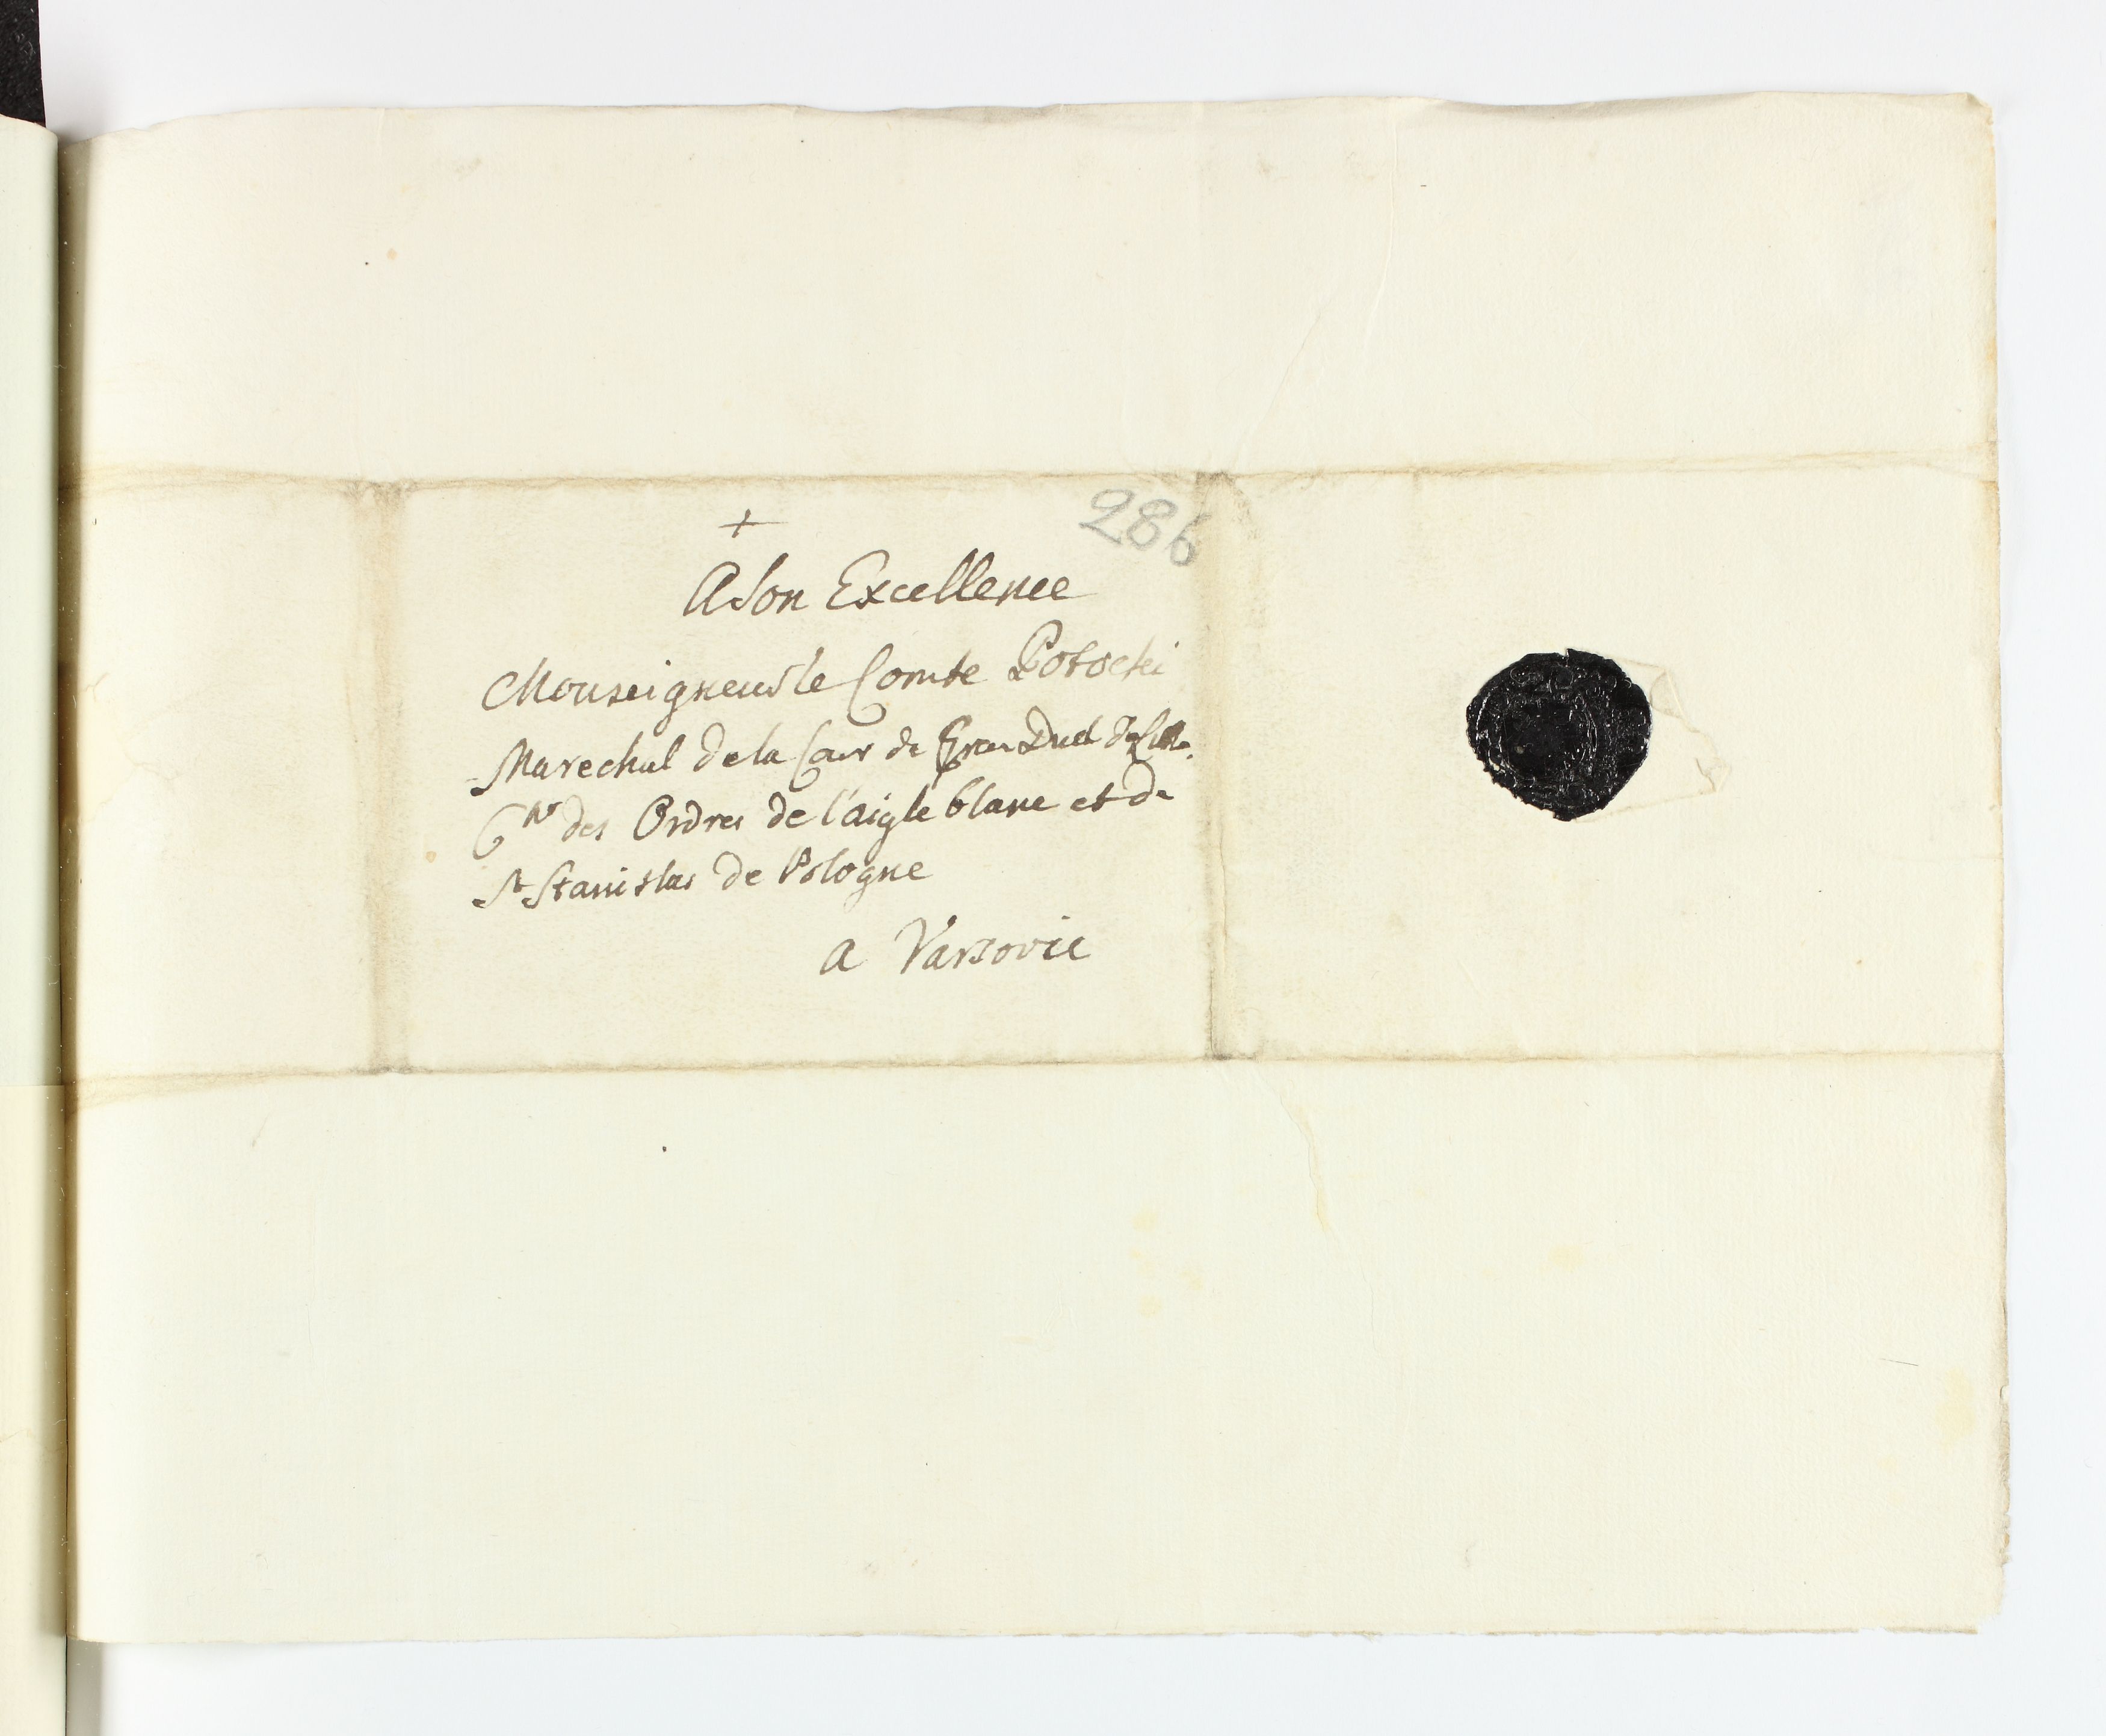 286
+
A Son Excellence
Monseigneur le Comte Potocki
Marechal de la Cour de Gran Duch de
Cer des Ordres de l'aigle blanc et de
St Stanislas de Pologne
a Varsovie